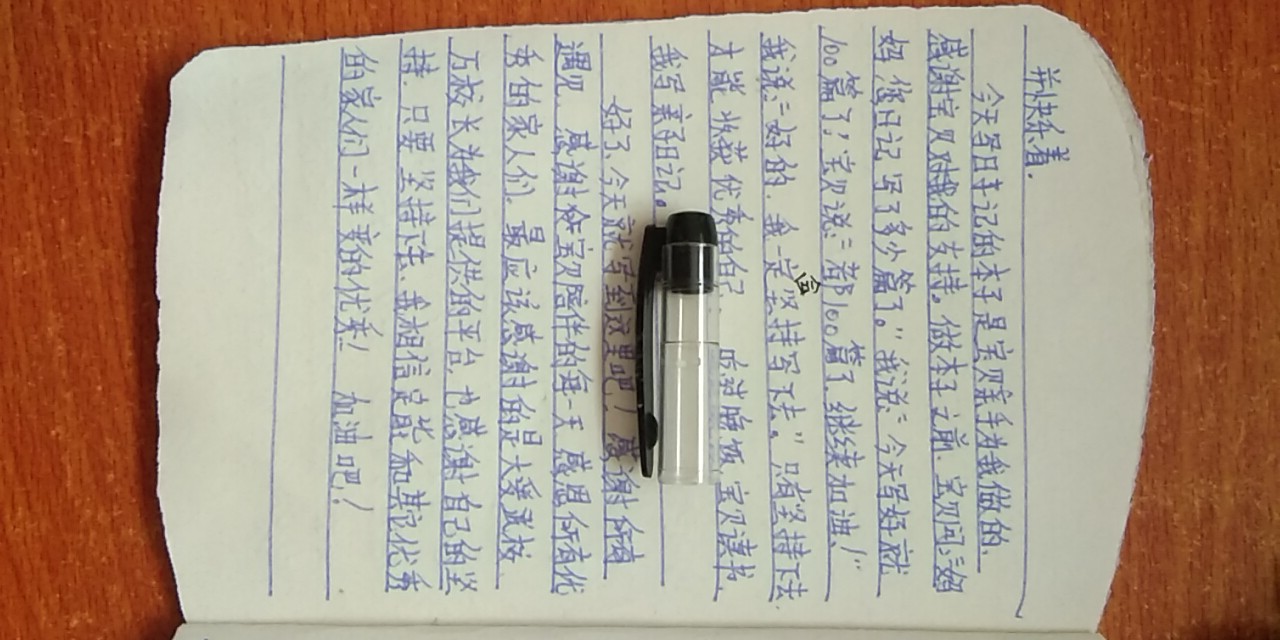 并快乐着.
今天写日记的本子是宝贝亲手为我做的.
感谢宝贝对我的支持。做本子之前 宝贝问:"妈
妈 您日记写了多少篇了。"我说:"今天写好就
100篇了!宝贝说:"都100篇了 继续加油!"
我说:"好的. 我一定会坚持写下去。"只有坚持下去
才能收获优秀的自己 吃过晚饭 宝贝读书.
我写亲子日记。
好了、今天就写到这里吧! 感谢所有
遇见. 感谢令宝贝陪伴的每一天 感恩所有优
秀的家人们. 最应该感谢的是大爱武校
万校长为我们提供的平台. 也感谢自己的坚
持. 只要坚持下去. 我相信定能和其它优秀
的家人们一样变的优秀! 加油吧!